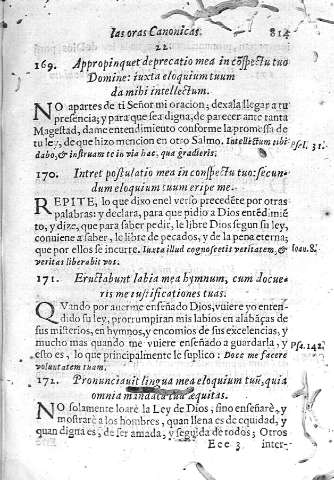 las oras Canonicas. 814
22
169. Appropinquet deprecatio mea in cõspectu tuo
Domine: iuxta eloquium tuum
da mihi intellectum.
NO apartes de ti Señor mi oracion; dexala llegar a tu
presencia; y para que sea digna, de parecer ante tanta
Magestad, dame entendimiento conforme la promessa de
tu ley, de que hizo mencion en otro Salmo. Intellectum tibi
dabo, & instruam te in via hac, qua gradieris. psal. 31.
170. Intret postulatio mea in conspectu tuo: secun-
dum eloquium tuum eripe me.
REPITE, lo que dixo enel verso precedẽte por otras
palabras: y declara, para que pidio a Dios entẽdimiẽ
to, y dize, que para saber pedir, le libre Dios segun su ley,
conuiene a saber, le libre de pecados, y de la pena eterna;
que por ellos se incurre. Iuxta illud cognoscetis veritatem, & Ioan. 8.
veritas liberabit vos.
171. Eructabunt labia mea hymnum, cum docue-
ris me iustificationes tuas.
QVando por auerme enseñado Dios, vuiere yo enten-
dido su ley, prorrumpiran mis labios en alabãças de
sus misterios, en hymnos, y encomios de sus excelencias, y
mucho mas quando me vuiere enseñado a guardarla, y
esto es, lo que principalmente le suplico: Doce me facere Psa. 142.
voluntatem tuam.
172. Pronunciauit lingua mea eloquium tuũ, quia
omnia mandata tua æquitas.
NO solamente loarè la Ley de Dios, sino enseñarè, y
mostrarè a los hombres, quan llena es de equidad, y
quan digna es, de ser amada, y seguida de todos; Otros
Eee 3 inter-